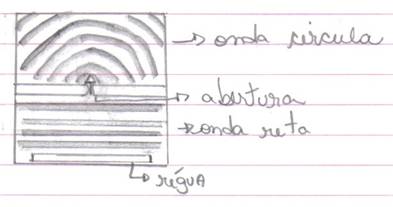 onda circula
abertura
onda reta
régua